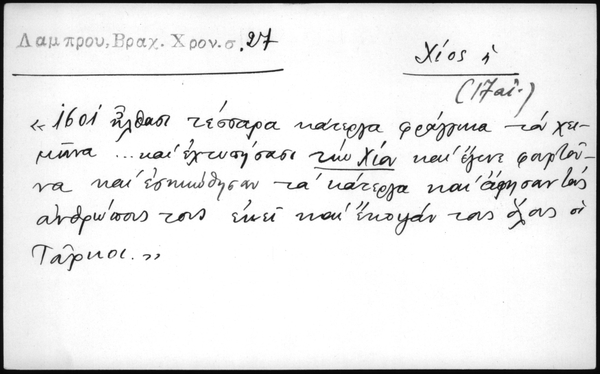 Λαμπρου, Βραχ. Χρον. σ. 27
Χίος ἡ
(17 αἰ.)
«1601 ἦλθασι τέσσαρα κάτεργα φράγγικα τὸν χει-
μῶνα ... καὶ ἐχτυπήσασι τὴν Χίον καὶ ἔγινε φουρτοῦ-
να καὶ ἐσηκώθησαν τὰ κάτεργα καὶ ἄφησαν τοὺς
ἀνθρώπους τους ἐκεῖ καὶ ἔκοψάν τους ὅλους οἱ
Τοῦρκοι.»